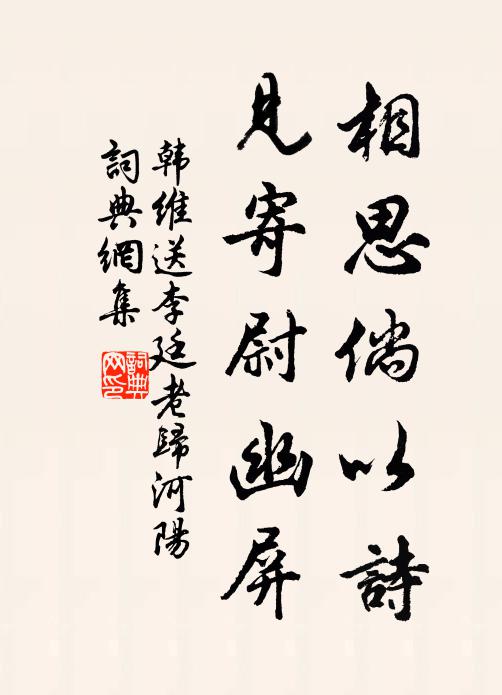 相思倘以詩
見寄尉幽屏
韩維送李廷老歸河陽
詞典網集
詞典网印